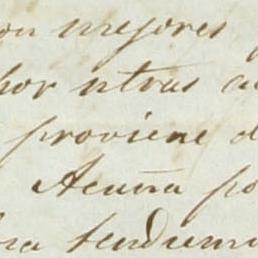 on mejores
hor otras a
proviene d
Acuña po
ra tendrem